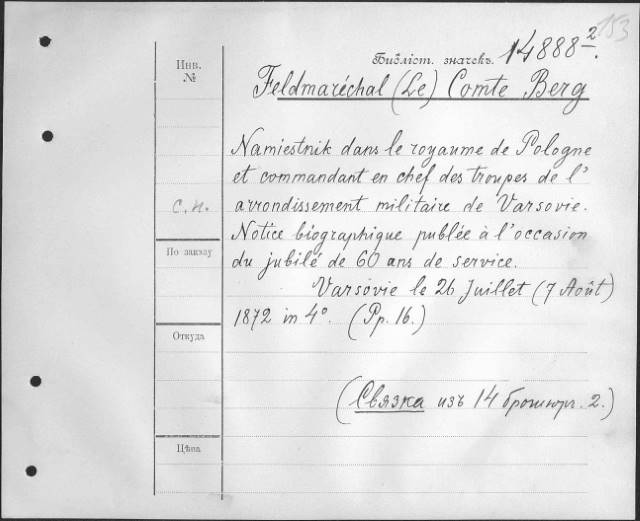 153
Библіот. значекъ. 14888 2.
Инв.
№
Feldmaréchal (Le) Comte Berg
Namiestnik dans le royaume de Pologne
et commandant en chef des troupes de l'
с.н. arrondissement militaire de Varsovie.
Notice biographique publée à l'occasion
По заказу
du jubilé de 60 ans de service.
Varsovie le 26 Juillet (7 Août)
1872 in 4°. (Pp. 16.)
Откуда
(Связка изъ 14 брошюр. 2.)
Цѣна